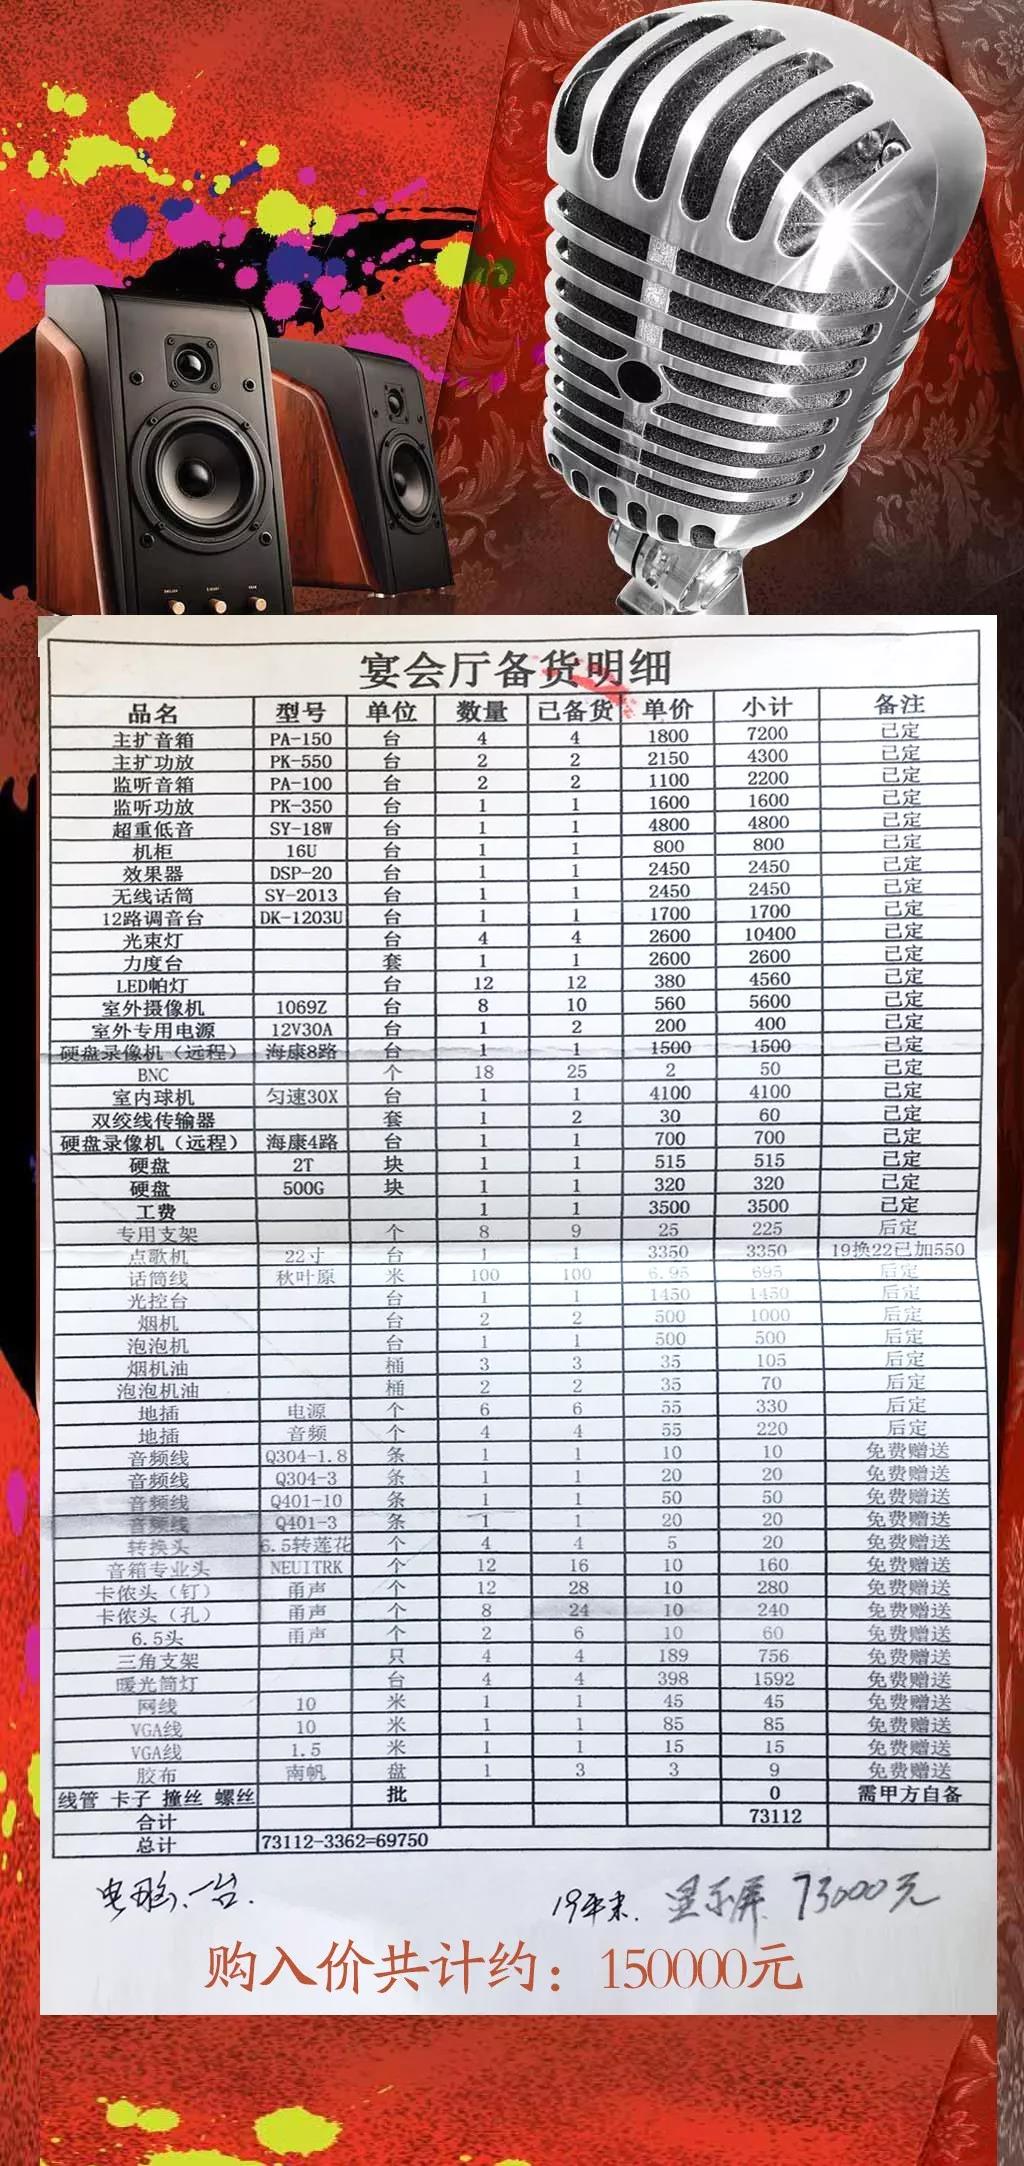 宴会厅备货明细
品名 型号 单位 数量 已备货 单价 小计 备注
主扩音箱 PA-150 台 4 4 1800 7200 已定
主扩功放 PK-550 台 2 2 2150 4300 已定
监听音箱 PA-100 台 2 2 1100 2200 已定
监听功放 PK-350 台 1 1 1600 1600 已定
超重低音 SY-18W 台 1 1 4800 4800 已定
机柜 16U 台 1 1 800 800 已定
效果器 DSP-20 台 1 1 2450 2450 已定
无线话筒 SY-2013 台 1 1 2450 2450 已定
12路调音台 DK-1203U 台 1 1 1700 1700 已定
光束灯 台 4 4 2600 10400 已定
力度台 套 1 1 2600 2600 已定
LED帕灯 台 12 12 380 4560 已定
室外摄像机 1069Z 台 8 10 560 5600 已定
室外专用电源 12V30A 台 1 2 200 400 已定
硬盘录像机（远程） 海康8路 台 1 1 1500 1500 已定
BNC 个 18 25 2 50 已定
室内球机 匀速30X 台 1 1 4100 4100 已定
双绞线传输器 套 1 2 30 60 已定
硬盘录像机（远程） 海康4路 台 1 1 700 700 已定
硬盘 2T 块 1 1 515 515 已定
硬盘 500G 块 1 1 320 320 已定
工费 1 1 3500 3500 已定
专用支架 个 8 9 25 225 后定
点歌机 22寸 台 1 1 3350 3350 19换22已加550
话筒线 秋叶原 米 100 100 6.95 695 后定
光控台 台 1 1 1450 1450 后定
烟机 台 2 2 500 1000 后定
泡泡机 台 1 1 500 500 后定
烟机油 桶 3 3 35 105 后定
泡泡机油 桶 2 2 35 70 后定
地插 电源 个 6 6 55 330 后定
地插 音频 个 4 4 55 220 后定
音频线 Q304-1.8 条 1 1 10 10 免费赠送
音频线 Q304-3 条 1 1 20 20 免费赠送
音频线 Q401-10 条 1 1 50 50 免费赠送
音频线 Q401-3 条 1 1 20 20 免费赠送
转换头 6.5转莲花 个 4 4 5 20 免费赠送
音箱专业头 NEUITRK 个 12 16 10 160 免费赠送
卡侬头（钉） 甬声 个 12 28 10 280 免费赠送
卡侬头（孔） 甬声 个 8 24 10 240 免费赠送
6.5头 甬声 个 2 6 10 60 免费赠送
三角支架 只 4 4 189 756 免费赠送
暖光筒灯 台 4 4 398 1592 免费赠送
网线 10 米 1 1 45 45 免费赠送
VGA线 10 米 1 1 85 85 免费赠送
VGA线 1.5 米 1 1 15 15 免费赠送
胶布 南帆 盘 1 3 3 9 免费赠送
线管 卡子 撞丝 螺丝 批 0 需甲方自备
合计 73112
总计 73112-3362=69750
电脑、一台. 19年末. 显示屏 73000元
购入价共计约：150000元